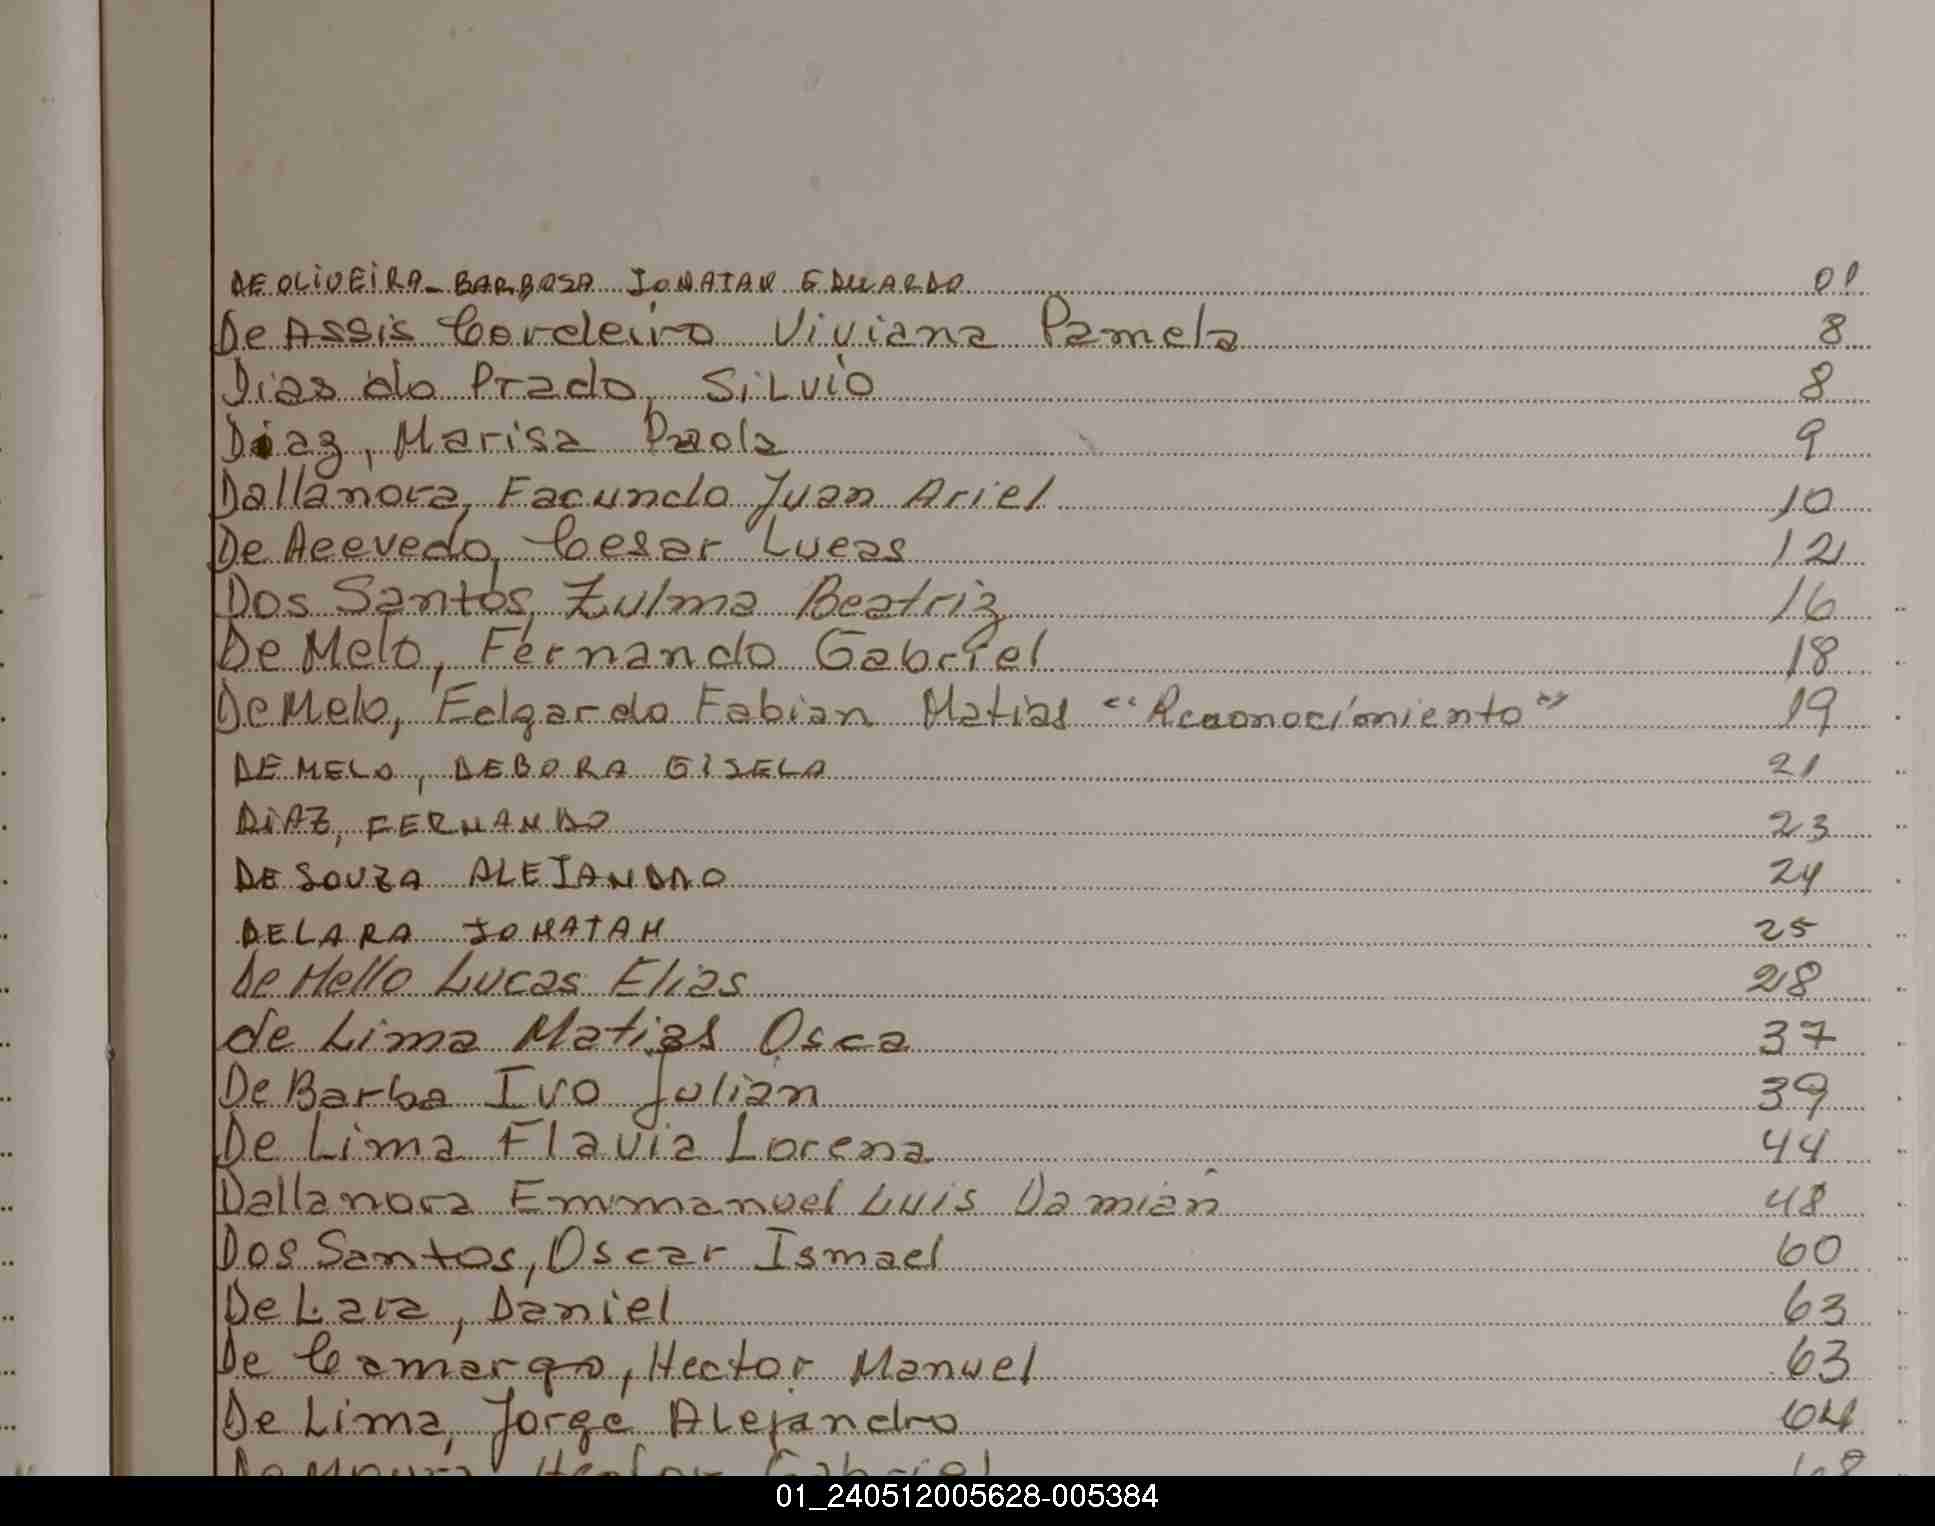 DE OLIVEIRA - BARBOSA JONATAN EDUARDO 01
De Assis Cordeiro Viviana Pamela 8
Dias do Prado, SiLvio 8
Diaz, Marisa Paola 9
Dallanora, Facundo Juan Ariel 10
De Acevedo, Cesar Lucas 12
Dos Santos, Zulma Beatriz 16
De Melo, Fernando Gabriel 18
De Melo, Edgardo Fabian Matias "Recaonocimiento" 19
DE MELO, DEBORA GISELA 21
DIAZ, FERNANDO 23
DE SOUZA ALEJANDRO 24
DE LARA JONATAN 25
De Mello Lucas Elias 28
de Lima Matias Osca 37
De Barba Ivo Julián 39
De Lima Flavia Lorena 44
Dallanora Emmanuel Luis Damian 48
Dos Santos, Oscar Ismael 60
De Lara, Daniel 63
De Camargo, Hector Manuel 63
De Lima, Jorge Alejandro 64
Gabriel 68
01_240512005628-005384